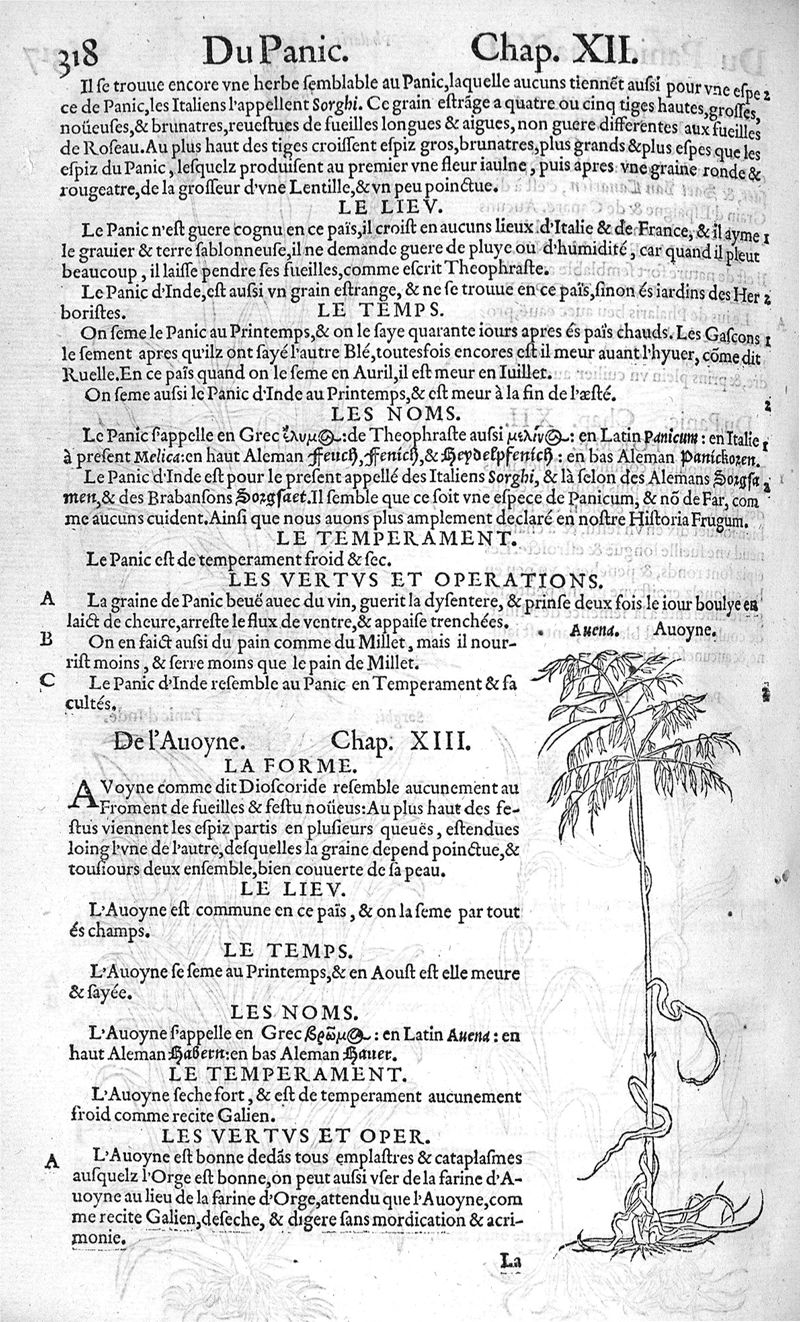 318 Du Panic. Chap. XII.
Il ſe trouue encore vne herbe ſemblable au Panic, laquelle aucuns tiennẽt auſsi pour vne eſpe 2
ce de Panic, les Italiens l'appellent Sorghi. Ce grain eſtrãge a quatre ou cinq tiges hautes, groſſes,
noüeuſes, & brunatres, reueſtues de fueilles longues & aigues, non guere differentes aux fueilles
de Roſeau. Au plus haut des tiges croiſſent eſpiz gros, brunatres, plus grands & plus eſpes que les
eſpiz du Panic, leſquelz produiſent au premier vne fleur iaulne, puis apres vne graine ronde &
rougeatre, de la groſſeur d'vne Lentille, & vn peu poinctue.
LE LIEV.
Le Panic n'eſt guere cognu en ce païs, il croiſt en aucuns lieux d'Italie & de France, & il ayme 1
le grauier & terre ſablonneuſe, il ne demande guere de pluye ou d'humidité, car quand il pleut
beaucoup, il laiſſe pendre ſes fueilles, comme eſcrit Theophraſte.
Le Panic d'Inde, eſt auſsi vn grain eſtrange, & ne ſe trouue en ce païs, ſinon és iardins des Her 2
boriſtes. LE TEMPS.
On ſeme le Panic au Printemps, & on le ſaye quarante iours apres és païs chauds. Les Gaſcons 1
le ſement apres qu'ilz ont ſayé l'autre Blé, toutesfois encores eſt il meur auant l'hyuer, cõme dit
Ruelle. En ce païs quand on le ſeme en Auril, il eſt meur en Iuillet.
On ſeme auſsi le Panic d'Inde au Printemps, & eſt meur à la fin de l'æſté. 2
LES NOMS.
Le Panic s'appelle en Grec ἔλυμος: de Theophraſte auſsi μελίνος: en Latin Panicum: en Italie 1
à preſent Melica: en haut Aleman Feuch, Fenich, & Heydelpfenich: en bas Aleman Panickoren.
Le Panic d'Inde eſt pour le preſent appellé des Italiens Sorghi, & là ſelon des Alemans Sorgſa 2
men, & des Brabanſons Sorgſaet. Il ſemble que ce ſoit vne eſpece de Panicum, & nõ de Far, com
me aucuns cuident. Ainſi que nous auons plus amplement declaré en noſtre Hiſtoria Frugum.
LE TEMPERAMENT.
Le Panic eſt de temperament froid & ſec.
LES VERTVS ET OPERATIONS.
A La graine de Panic beuë auec du vin, guerit la dyſentere, & prinſe deux fois le iour boulye en
laict de cheure, arreſte le flux de ventre, & appaiſe trenchées.
B On en faict auſsi du pain comme du Millet, mais il nour-
riſt moins, & ſerre moins que le pain de Millet.
C Le Panic d'Inde reſemble au Panic en Temperament & fa 2
cultés.
Auena. Auoyne.
De l'Auoyne. Chap. XIII.
LA FORME.
AVoyne comme dit Dioſcoride reſemble aucunement au
Froment de fueilles & feſtu noüeus: Au plus haut des fe-
ſtus viennent les eſpiz partis en pluſieurs queuës, eſtendues
loing l'vne de l'autre, deſquelles la graine depend poinctue, &
touſiours deux enſemble, bien couuerte de ſa peau.
LE LIEV.
L'Auoyne eſt commune en ce païs, & on la ſeme par tout
és champs.
LE TEMPS.
L'Auoyne ſe ſeme au Printemps, & en Aouſt eſt elle meure
& ſayée.
LES NOMS.
L'Auoyne s'appelle en Grec βρῶμος: en Latin Auena: en
haut Aleman Habern: en bas Aleman Hauer.
LE TEMPERAMENT.
L'Auoyne ſeche fort, & eſt de temperament aucunement
froid comme recite Galien.
LES VERTVS ET OPER.
A L'Auoyne eſt bonne dedãs tous emplaſtres & cataplaſmes
auſquelz l'Orge eſt bonne, on peut auſsi vſer de la farine d'A-
uoyne au lieu de la farine d'Orge, attendu que l'Auoyne, com
me recite Galien, deſeche, & digere ſans mordication & acri-
monie.
La